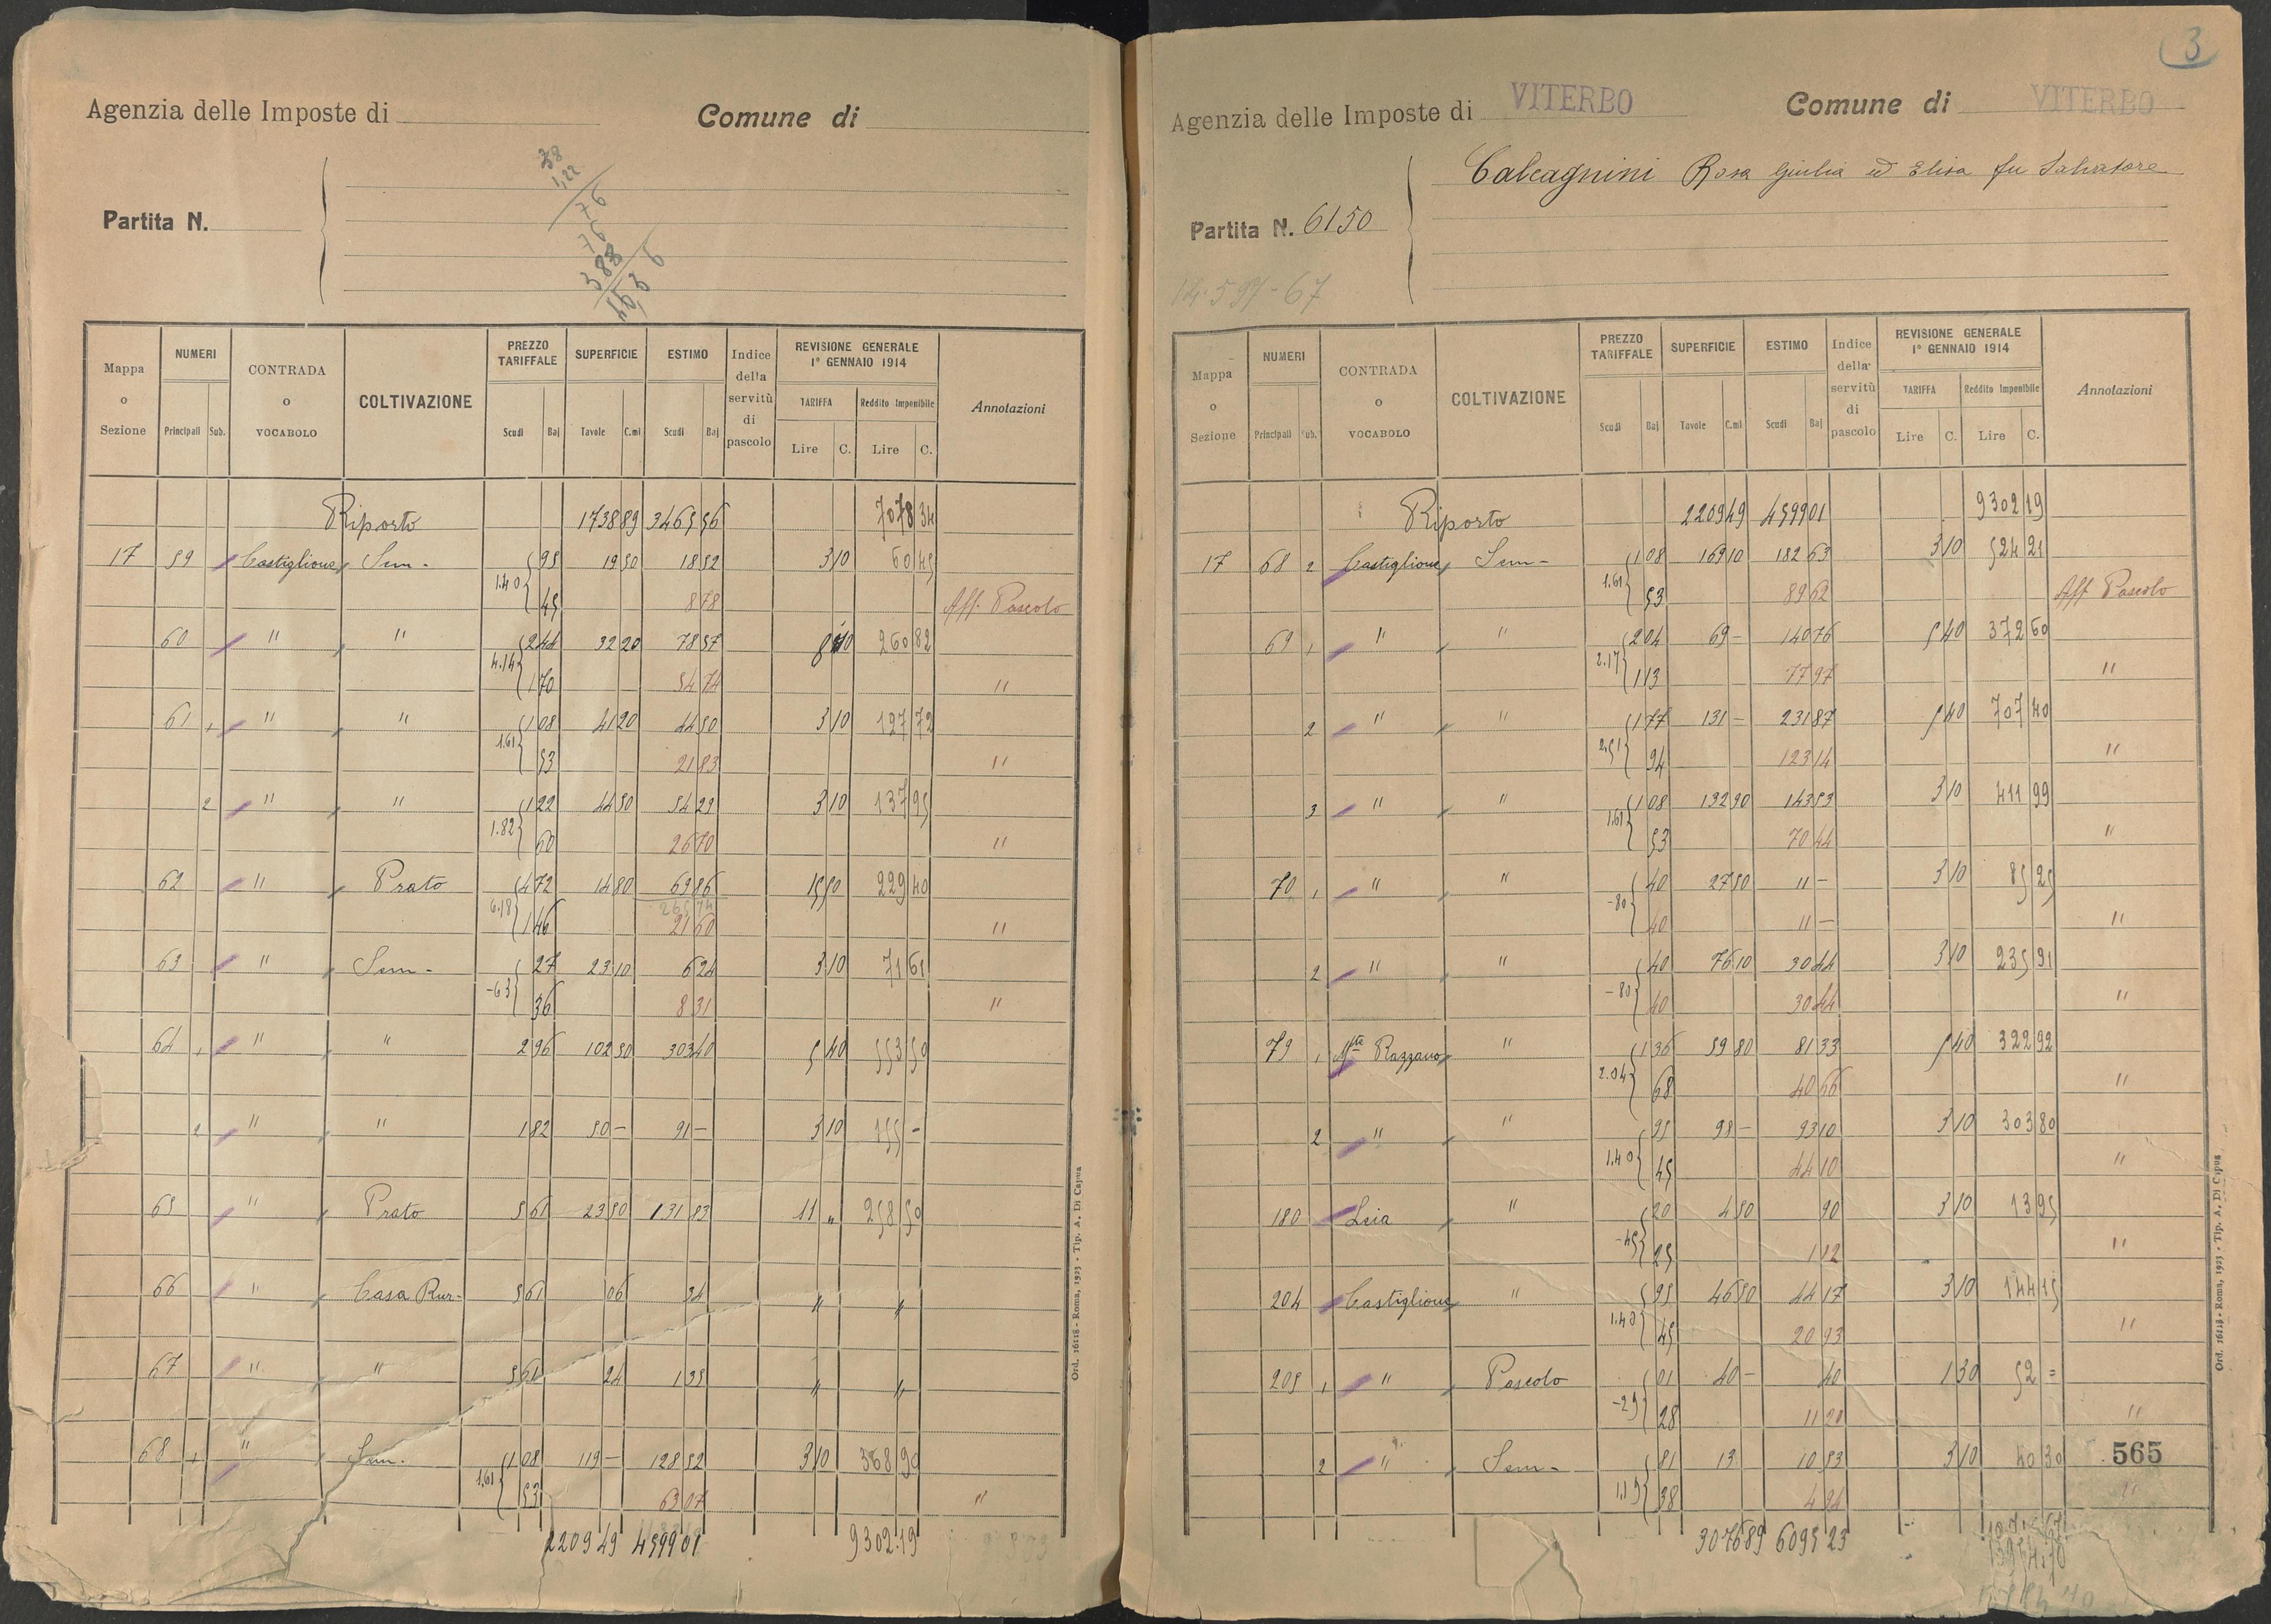 Agenzia delle Imposte di
Comune di
Partita N.
38
1,22
76
76
388
Mappa o Sezione | NUMERI Principali Sub. | CONTRADA o VOCABOLO | COLTIVAZIONE | PREZZO TARIFFALE Scudi Baj | SUPERFICIE Tavole C.mi | ESTIMO Scudi Baj | Indice della servitù di pascolo | REVISIONE GENERALE 1° GENNAIO 1914 TARIFFA Lire C. Reddito Imponibile Lire C. | Annotazioni
Riporto 1738 89 3465 56 7078 34
17 59 Castiglione Sem. 95 19 50 18 52 3 10 60 45
1.40 45 8 78 Aff. Pascolo
60 " " 2 44 32 20 78 57 8 10 260 82
4.14 1 70 54 74 "
61 1 " " 1 08 41 20 44 50 3 10 127 72
1.61 53 21 83 "
2 " " 1 22 44 50 54 29 3 10 137 95
1.82 60 26 70 "
62 " Prato 4 72 14 80 69 86 15 50 229 40
6.18 1 46 21 60 "
63 " Sem. 27 23 10 6 24 3 10 71 61
-63 36 8 31 "
64 1 " " 2 96 102 50 303 40 5 40 553 50
2 " " 1 82 50 — 91 — 3 10 155 -
65 " Prato 5 61 23 50 131 83 11 " 258 50
66 " Casa Rur. 5 61 06 34 " "
67 " " 5 61 24 1 35 " "
68 1 " Sem. 1 08 119 — 128 52 3 10 368 90
1.61 53 63 07 "
2209 49 4599 01 9302.19
Ord. 16118 - Roma, 1923 - Tip. A. Di Capua
3
Agenzia delle Imposte di VITERBO
Comune di VITERBO
Calcagnini Rosa Giulia ed Elisa fu Salvatore
Partita N. 6150
14.597-67
Mappa o Sezione | NUMERI Principali Sub. | CONTRADA o VOCABOLO | COLTIVAZIONE | PREZZO TARIFFALE Scudi Baj | SUPERFICIE Tavole C.mi | ESTIMO Scudi Baj | Indice della servitù di pascolo | REVISIONE GENERALE 1° GENNAIO 1914 TARIFFA Lire C. Reddito Imponibile Lire C. | Annotazioni
Riporto 2209 49 4599 01 9302 19
17 68 2 Castiglione Sem- 1 08 169 10 182 63 3 10 524 21
1.61 53 89 62 Aff Pascolo
69 1 " " 2 04 69 - 140 76 5 40 372 60
2.17 1 13 77 97 "
2 " " 1 77 131 - 231 87 5 40 707 40
2.51 94 123 14 "
3 " " 1 08 132 90 143 53 3 10 411 99
1.61 53 70 44 "
70 1 " " 40 27 50 11 - 3 10 85 25
-80 40 11 - "
2 " " 40 76 10 30 44 3 10 235 91
-80 40 30 44 "
79 1 Mte Razzano " 1 36 59 80 81 33 5 40 322 92
2.04 68 40 66 "
2 " " 95 98 - 93 10 3 10 303 80
1.40 45 44 10 "
180 Leia " 20 4 50 90 3 10 13 95
-45 25 1 12 "
204 Castiglione " 95 46 50 44 17 3 10 144 15
1.40 45 20 93 "
205 1 " Pascolo 01 40 - 40 1 30 52 =
-29 28 11 20 "
2 " Sem- 81 13 10 53 3 10 40 30 565
1.19 38 4 94 "
3076 89 6095 23
Ord. 16118 - Roma, 1923 - Tip. A. Di Capua